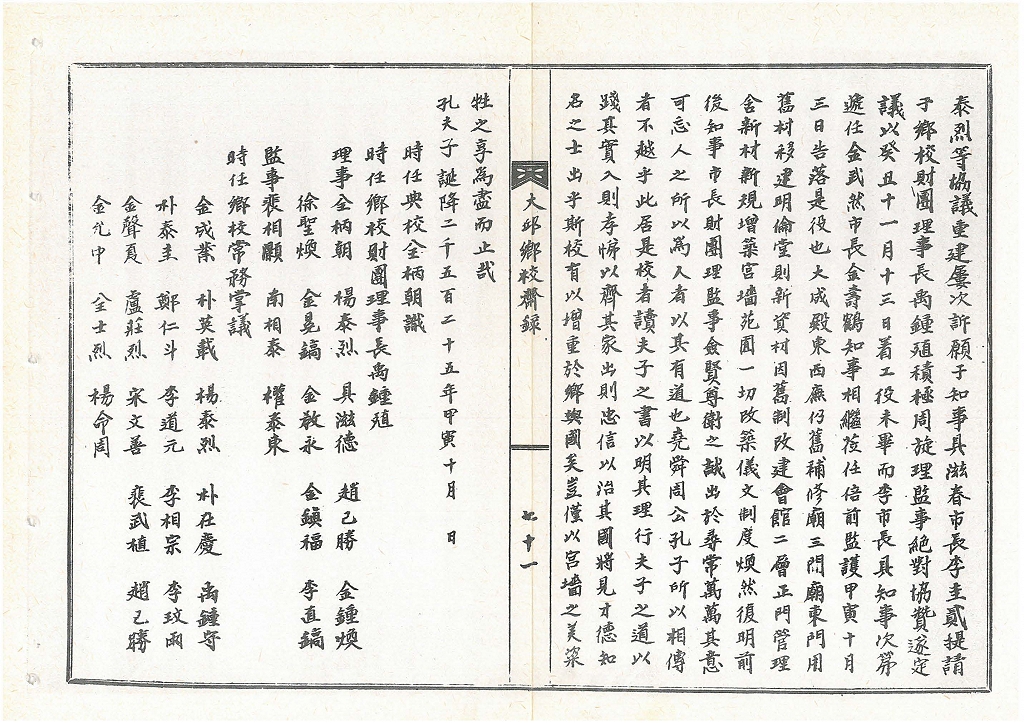 泰烈等協議重建屢次訴願于知事具滋春市長李圭貳提請
于鄕校財團理事長禹鍾殖積極周旋理監事絶對協贊遂定
議以癸丑十一月十三日着工役未畢而李市長具知事次第
遞任金武然市長金壽鶴知事相繼莅任倍前監護甲寅十月
三日告落是役也大成殿東西廡仍舊補修廟三門廟東門用
舊材移建明倫堂則新資材因舊制改建會館二層正門管理
舍新材新規增築宮墻苑囿一切改築儀文制度煥然復明前
後知事市長財團理監事僉賢尊衛之誠出於尋常萬萬其意
可忘人之所以爲人者以其有道也堯舜周公孔子所以相傳
者不越乎此居是校者讀夫子之書以明其理行夫子之道以
踐其實入則孝悌以齊其家出則忠信以治其國將見才德知
名之士出乎斯校有以增重於鄕與國矣豈僅以宮墻之美粢
大邱鄕校齋錄
七十一
牲之享爲盡而止哉
孔夫子誕降二千五百二十五年甲寅十月 日
時任典校全柄朝識
時任鄕校財團理事長禹鍾殖
理事全柄朝 楊泰烈 具滋德 趙己勝 金鍾煥
徐聖煥 金晃鎬 金敎永 金鎭福 李直鎬
監事裵相願 南相泰 權泰東
時任鄕校常務掌議
金成業 朴英載 楊泰烈 朴在慶 禹鍾守
朴泰圭 鄭仁斗 李道元 李相宗 李玟雨
金聲夏 盧莊烈 宋文善 裵武植 趙己勝
金允中 全士烈 楊命周